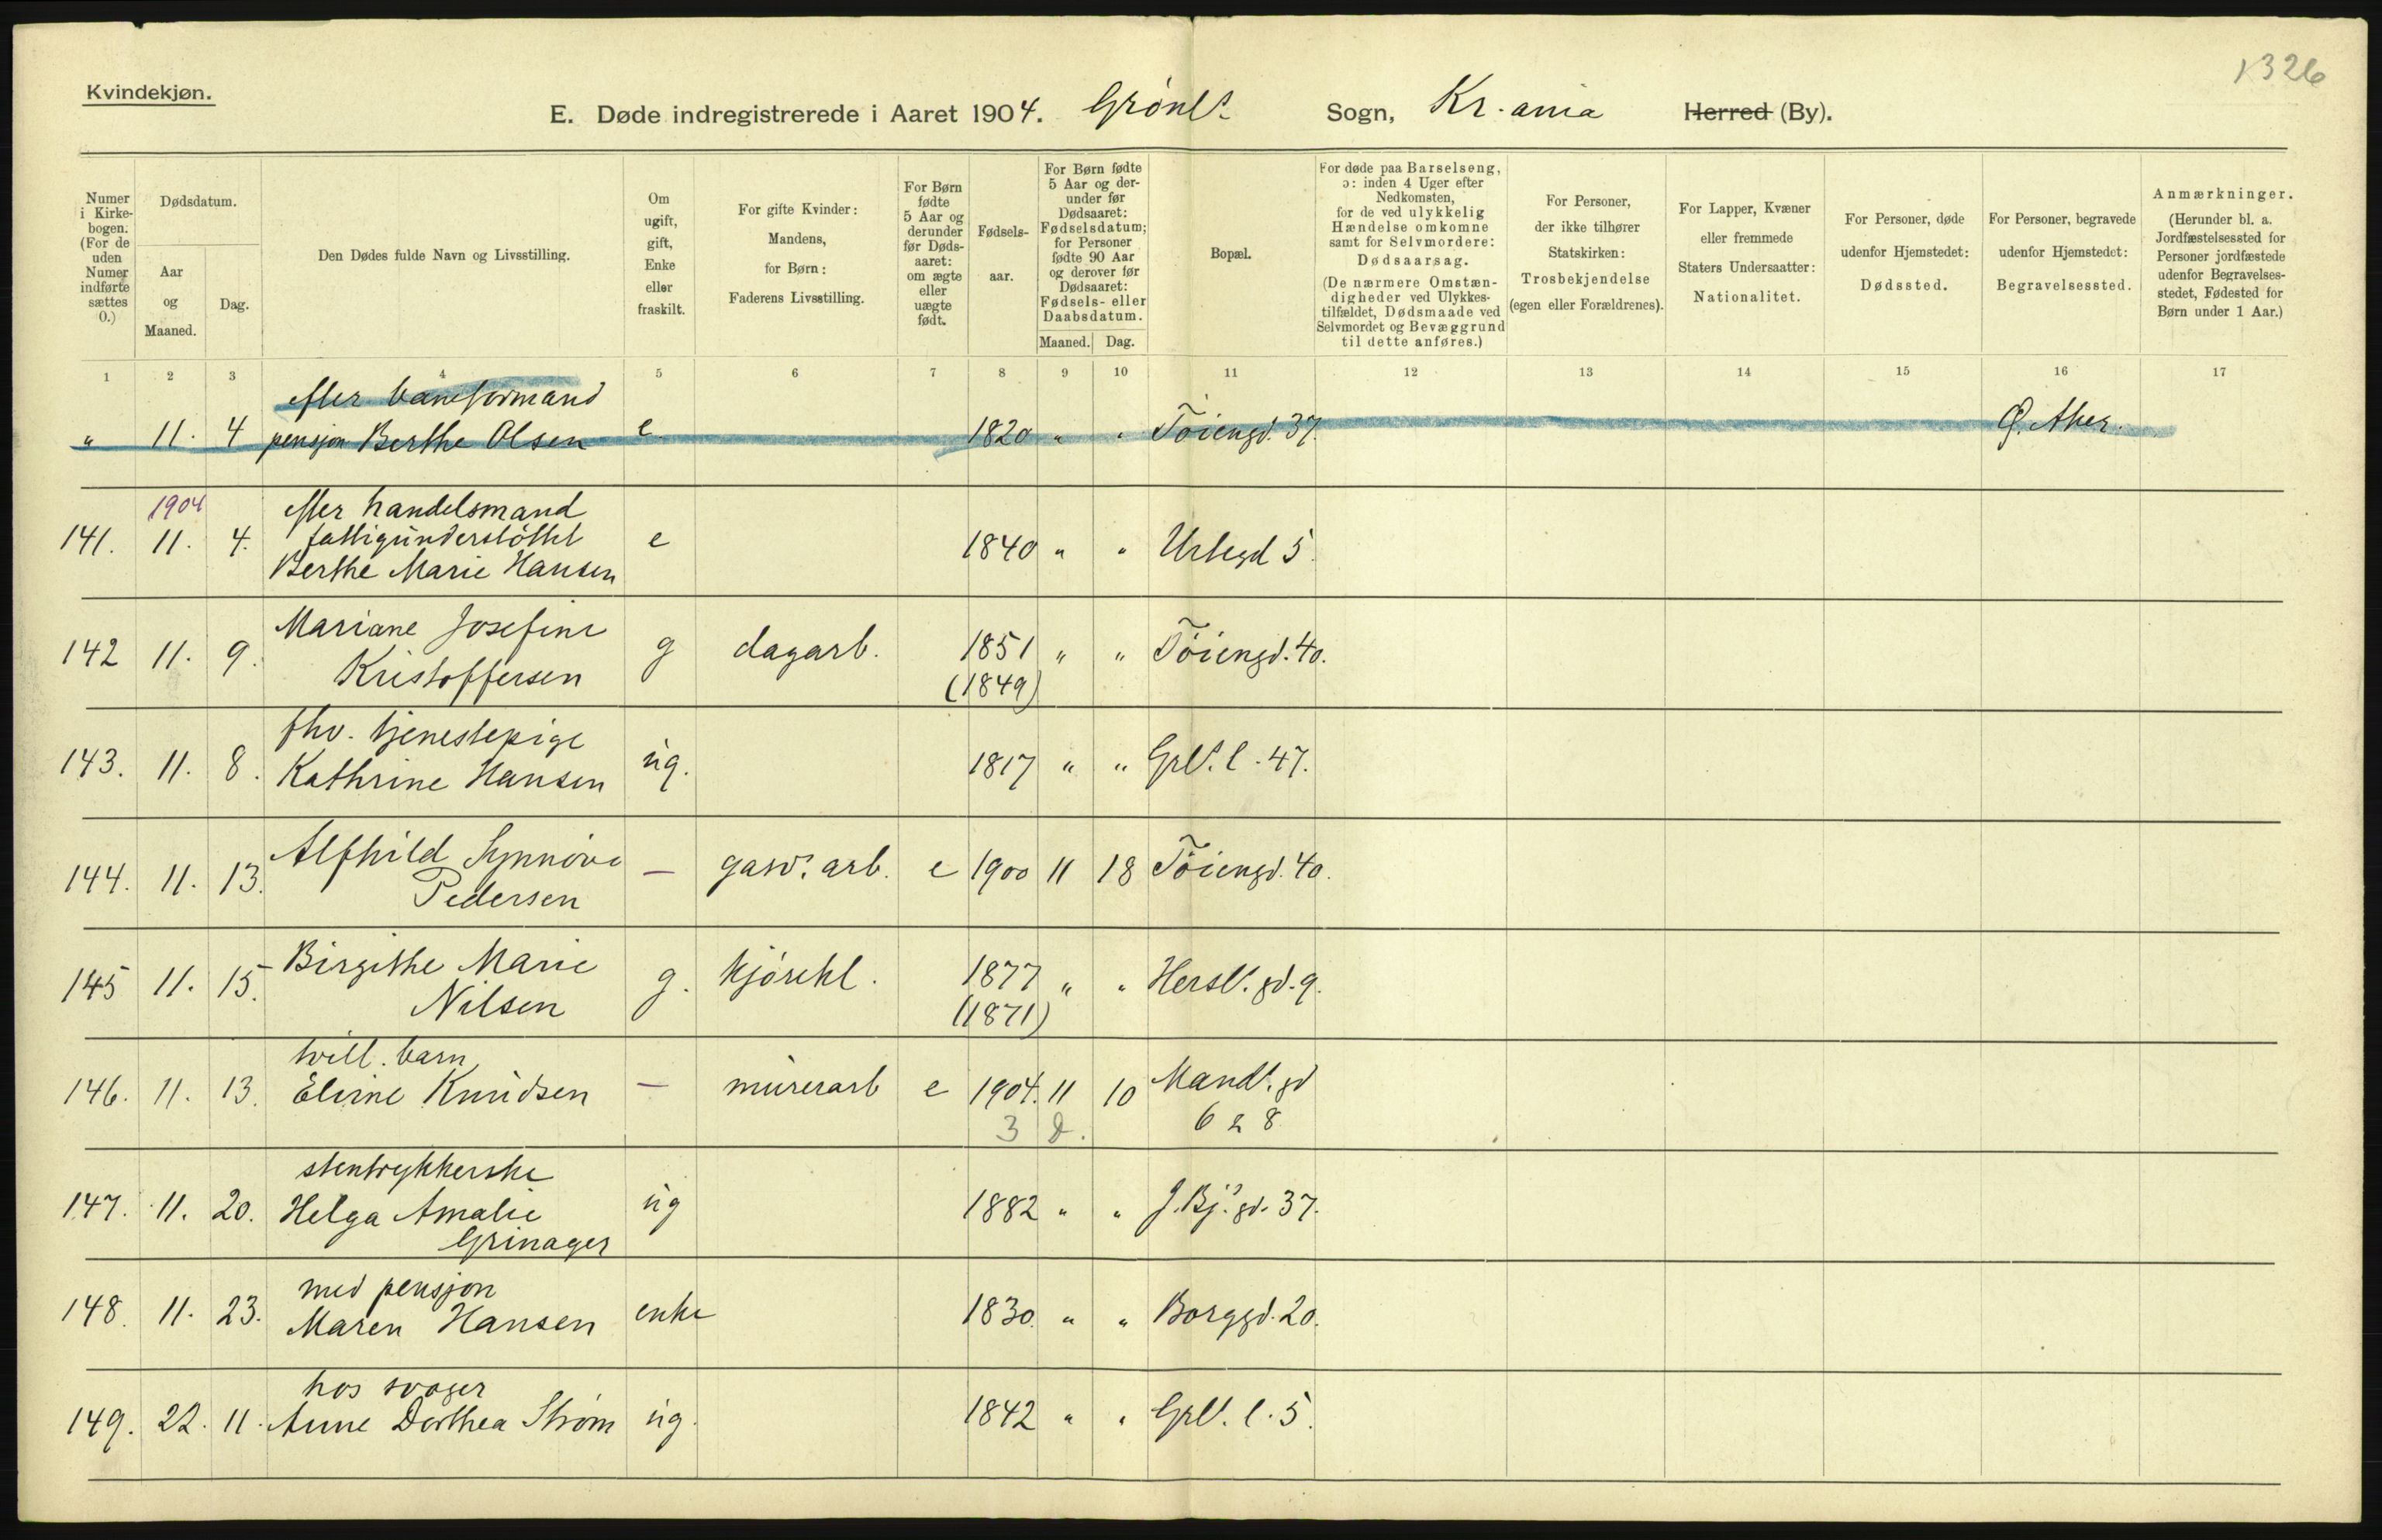 1326
Kvindekjøn.
E. Døde indregistrerede i Aaret 1904. Grønl. Sogn, Kr.ania Herred (By).
Numer i Kirkebogen. (For de uden Numer indførte sættes 0.)
Dødsdatum.
Aar og Maaned.
Dag.
Den Dødes fulde Navn og Livsstilling.
Om ugift, gift, Enke eller fraskilt.
For gifte Kvinder: Mandens, for Børn: Faderens Livsstilling.
For Børn fødte 5 Aar og derunder før Dødsaaret: om ægte eller uægte født.
Fødsels-aar.
For Børn fødte 5 Aar og derunder før Dødsaaret: Fødselsdatum; for Personer fødte 90 Aar og derover før Dødsaaret: Fødsels- eller Daabsdatum.
Maaned. Dag.
Bopæl.
For døde paa Barselseng, ɔ: inden 4 Uger efter Nedkomsten, for de ved ulykkelig Hændelse omkomne samt for Selvmordere: Dødsaarsag. (De nærmere Omstændigheder ved Ulykkestilfældet, Dødsmaade ved Selvmordet og Bevæggrund til dette anføres.)
For Personer, der ikke tilhører Statskirken: Trosbekjendelse (egen eller Forældrenes).
For Lapper, Kvæner eller fremmede Staters Undersaatter: Nationalitet.
For Personer, døde udenfor Hjemstedet: Dødssted.
For Personer, begravede udenfor Hjemstedet: Begravelsessted.
Anmærkninger. (Herunder bl. a. Jordfæstelsessted for Personer jordfæstede udenfor Begravelsesstedet, Fødested for Børn under 1 Aar.)
1 2 3 4 5 6 7 8 9 10 11 12 13 14 15 16 17
efter baneformand
" 11. 4 pensjon Berthe Olsen e 1820 " " Töiengd. 37. Ø. Aker.
1904 efter handelsmand
141. 11. 4. fattigünderstöttet e 1840 " " Urtegd 5.
Berthe Marie Hansen
142 11. 9. Mariane Josefine g dagarb. 1851 " " Töiengd. 40.
Kristoffersen (1849)
fhv. tjenestepige
143. 11. 8. Kathrine Hansen üg. 1817 " " Grl. l. 47.
144. 11. 13. Alfhild Synnöve — gasv. arb. e 1900 11 18 Töiengd. 40.
Pedersen
145 11. 15. Birgithe Marie g. kjörekl. 1877 " " Hersl. gd. 9.
Nilsen (1871)
tvill. barn
146. 11. 13. Elvine Knüdsen — mürerarb e 1904. 11 10 Mandl. gd
3 D. 6 & 8
stentrykkerske
147. 11. 20. Helga Amalie üg 1882 " " J. Bj. gd. 37.
Grinager
med pensjon
148. 11. 23. Maren Hansen enke 1830. " " Borggd. 20.
hos svoger
149. 22. 11. Anne Dorthea Strøm üg. 1842 " " Grl. l. 5.